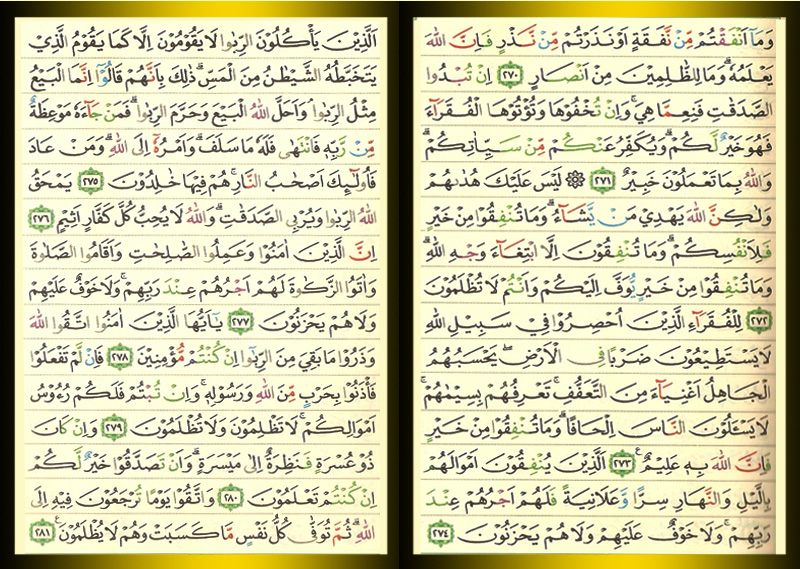 وَمَٓا اَنْفَقْتُمْ مِنْ نَفَقَةٍ اَوْ نَذَرْتُمْ مِنْ نَذْرٍ فَاِنَّ اللّٰهَ
يَعْلَمُهُۜ وَمَا لِلظَّالِمٖينَ مِنْ اَنْصَارٍ ﴿٢٧٠﴾ اِنْ تُبْدُوا
الصَّدَقَاتِ فَنِعِمَّا هِيَۚ وَاِنْ تُخْفُوهَا وَتُؤْتُوهَا الْفُقَرَٓاءَ
فَهُوَ خَيْرٌ لَكُمْۜ وَيُكَفِّرُ عَنْكُمْ مِنْ سَيِّاٰتِكُمْۜ
وَاللّٰهُ بِمَا تَعْمَلُونَ خَبٖيرٌ ﴿٢٧١﴾ ۞ لَيْسَ عَلَيْكَ هُدٰيهُمْ
وَلٰكِنَّ اللّٰهَ يَهْدٖي مَنْ يَشَٓاءُۜ وَمَا تُنْفِقُوا مِنْ خَيْرٍ
فَلِاَنْفُسِكُمْۜ وَمَا تُنْفِقُونَ اِلَّا ابْتِغَٓاءَ وَجْهِ اللّٰهِۜ
وَمَا تُنْفِقُوا مِنْ خَيْرٍ يُوَفَّ اِلَيْكُمْ وَاَنْتُمْ لَا تُظْلَمُونَ
﴿٢٧٢﴾ لِلْفُقَرَٓاءِ الَّذٖينَ اُحْصِرُوا فٖي سَبٖيلِ اللّٰهِ
لَا يَسْتَطٖيعُونَ ضَرْبًا فِي الْاَرْضِۘ يَحْسَبُهُمُ
الْجَاهِلُ اَغْنِيَٓاءَ مِنَ التَّعَفُّفِۚ تَعْرِفُهُمْ بِسٖيمٰيهُمْۚ
لَا يَسْـَٔلُونَ النَّاسَ اِلْحَافًاۜ وَمَا تُنْفِقُوا مِنْ خَيْرٍ
فَاِنَّ اللّٰهَ بِهٖ عَلٖيمٌ ﴿٢٧٣﴾ اَلَّذٖينَ يُنْفِقُونَ اَمْوَالَهُمْ
بِالَّيْلِ وَالنَّهَارِ سِرًّا وَعَلَانِيَةً فَلَهُمْ اَجْرُهُمْ عِنْدَ
رَبِّهِمْۚ وَلَا خَوْفٌ عَلَيْهِمْ وَلَا هُمْ يَحْزَنُونَ ﴿٢٧٤﴾
اَلَّذٖينَ يَأْكُلُونَ الرِّبٰوا لَا يَقُومُونَ اِلَّا كَمَا يَقُومُ الَّذٖي
يَتَخَبَّطُهُ الشَّيْطَانُ مِنَ الْمَسِّۜ ذٰلِكَ بِاَنَّهُمْ قَالُٓوا اِنَّمَا الْبَيْعُ
مِثْلُ الرِّبٰواۢ وَاَحَلَّ اللّٰهُ الْبَيْعَ وَحَرَّمَ الرِّبٰواۜ فَمَنْ جَٓاءَهُ مَوْعِظَةٌ
مِنْ رَبِّهٖ فَانْتَهٰى فَلَهُ مَا سَلَفَۜ وَاَمْرُهُٓ اِلَى اللّٰهِۜ وَمَنْ عَادَ
فَاُو۬لٰٓئِكَ اَصْحَابُ النَّارِۚ هُمْ فٖيهَا خَالِدُونَ ﴿٢٧٥﴾ يَمْحَقُ
اللّٰهُ الرِّبٰوا وَيُرْبِي الصَّدَقَاتِۜ وَاللّٰهُ لَا يُحِبُّ كُلَّ كَفَّارٍ اَثٖيمٍ ﴿٢٧٦﴾
اِنَّ الَّذٖينَ اٰمَنُوا وَعَمِلُوا الصَّالِحَاتِ وَاَقَامُوا الصَّلٰوةَ
وَاٰتَوُا الزَّكٰوةَ لَهُمْ اَجْرُهُمْ عِنْدَ رَبِّهِمْۚ وَلَا خَوْفٌ عَلَيْهِمْ
وَلَا هُمْ يَحْزَنُونَ ﴿٢٧٧﴾ يَٓا اَيُّهَا الَّذٖينَ اٰمَنُوا اتَّقُوا اللّٰهَ
وَذَرُوا مَا بَقِيَ مِنَ الرِّبٰٓوا اِنْ كُنْتُمْ مُؤْمِنٖينَ ﴿٢٧٨﴾ فَاِنْ لَمْ تَفْعَلُوا
فَأْذَنُوا بِحَرْبٍ مِنَ اللّٰهِ وَرَسُولِهٖۚ وَاِنْ تُبْتُمْ فَلَكُمْ رُؤُ۫سُ
اَمْوَالِكُمْۚ لَا تَظْلِمُونَ وَلَا تُظْلَمُونَ ﴿٢٧٩﴾ وَاِنْ كَانَ
ذُو عُسْرَةٍ فَنَظِرَةٌ اِلٰى مَيْسَرَةٍۜ وَاَنْ تَصَدَّقُوا خَيْرٌ لَكُمْ
اِنْ كُنْتُمْ تَعْلَمُونَ ﴿٢٨٠﴾ وَاتَّقُوا يَوْمًا تُرْجَعُونَ فٖيهِ اِلَى
اللّٰهِ۠ ثُمَّ تُوَفّٰى كُلُّ نَفْسٍ مَا كَسَبَتْ وَهُمْ لَا يُظْلَمُونَ۟ ﴿٢٨١﴾